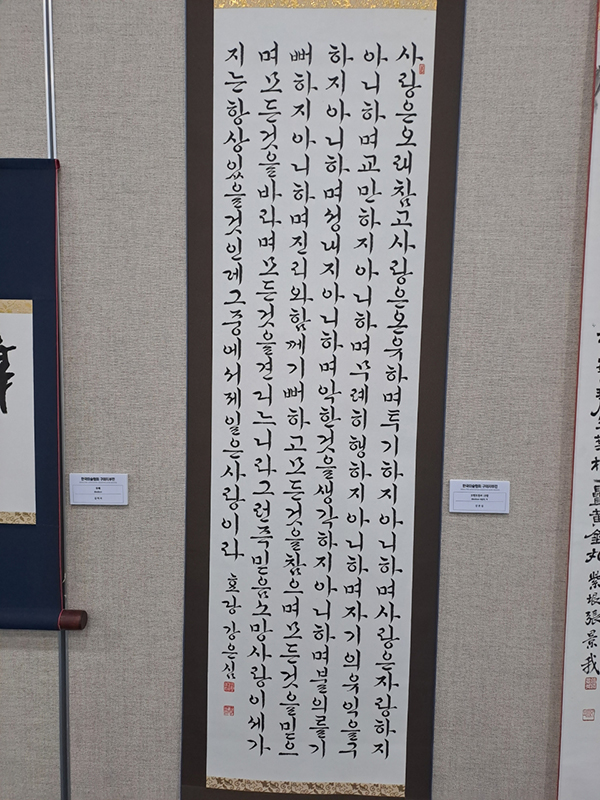 사랑은오래참고사랑은온유하며투기하지아니하며사랑은자랑하지
아니하며교만하지아니하며무례히행하지아니하며자기의유익을구
하지아니하며성내지아니하며악한것을생각하지아니하며불의를기
뻐하지아니하며진리와함께기뻐하고모든것을참으며모든것을믿으
며모든것을바라며모든것을견디느니라그런즉믿음소망사랑이세가
지는항상있을것인데그중에서제일은사랑이라 효랑 강은심
한국미술협회 구리지부전
한국미술협회 구리지부전
黃金
張景我